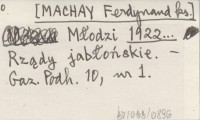 [MACHAY Ferdynand ks.]
Młodzi 1922...
Rządy jabłońskie. –
Gaz. Podh. 10, nr 1.